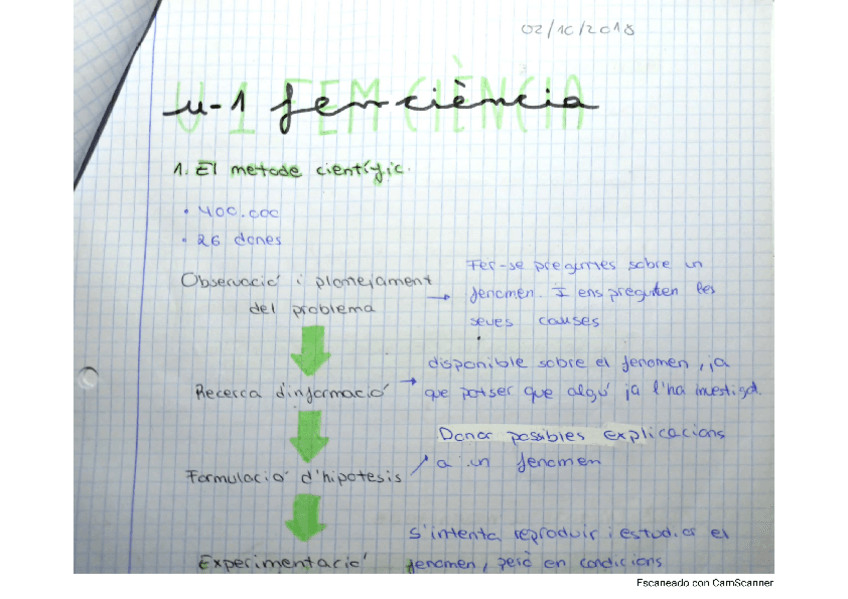 02/10/2018
U-1 FEM CIÈNCIA
u-1 fem ciència
1. El metode científic.
• 400.000
• 26 dones
Observació i plantejament
del problema
Fer-se preguntes sobre un
fenomen. I ens pregunten les
seves causes
Recerca d'informació
disponible sobre el fenomen, ja
que potser que algú ja l'ha investigat.
Formulació d'hipotesis
Donar possibles explicacions
a un fenomen
Experimentació
S'intenta reproduir i estudiar el
fenomen, però en condicions
Escaneado con CamScanner